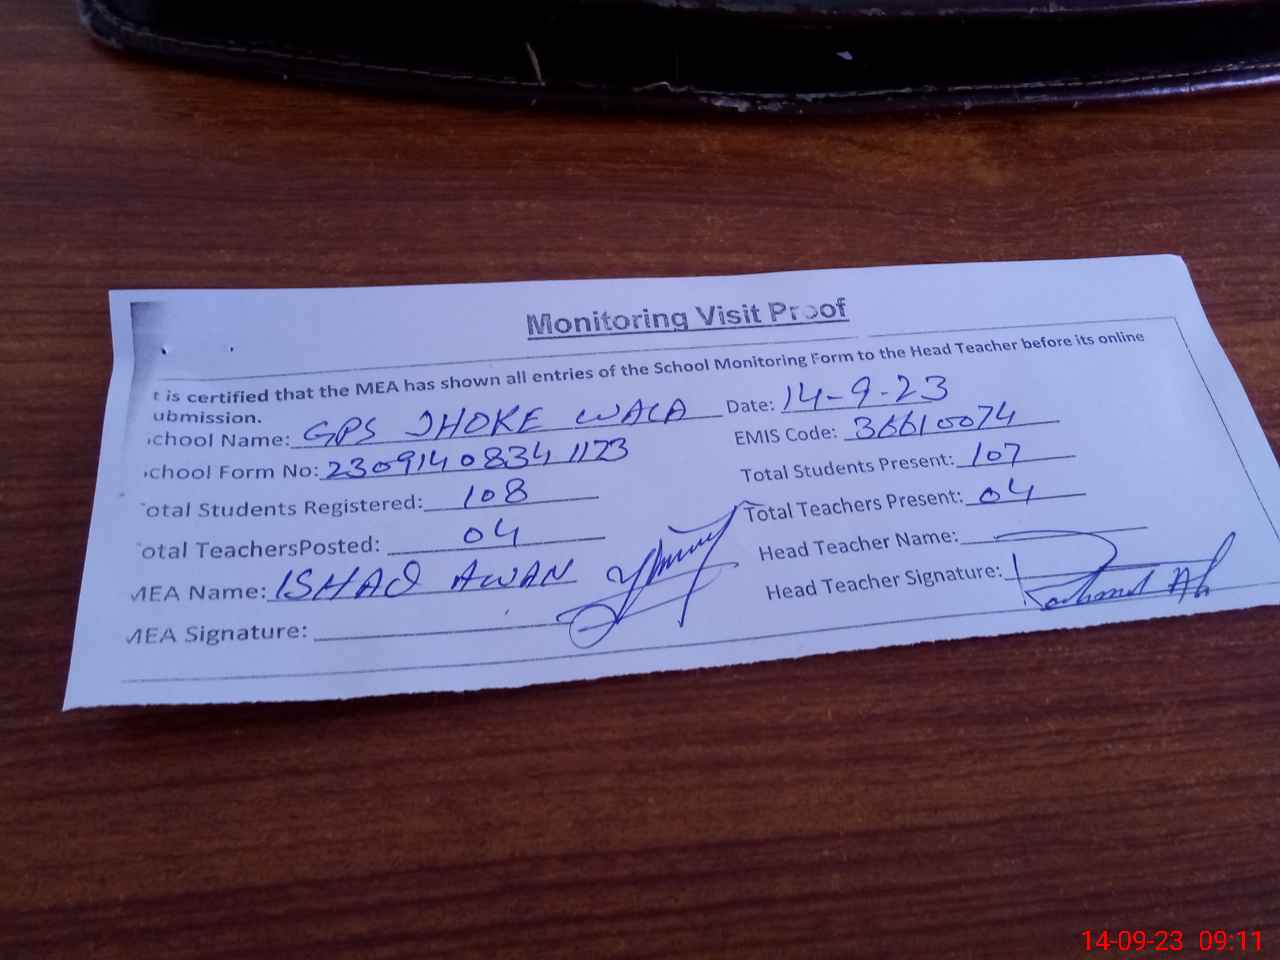 Monitoring Visit Proof
t is certified that the MEA has shown all entries of the School Monitoring Form to the Head Teacher before its online
ubmission.
chool Name: GPS JHOKE WALA Date: 14-9-23
chool Form No: 23091408341123 EMIS Code: 36610074
otal Students Registered: 108 Total Students Present: 107
otal TeachersPosted: 04 Total Teachers Present: 04
MEA Name: ISHAQ AWAN Head Teacher Name:
MEA Signature: Head Teacher Signature:
14-09-23 09:11